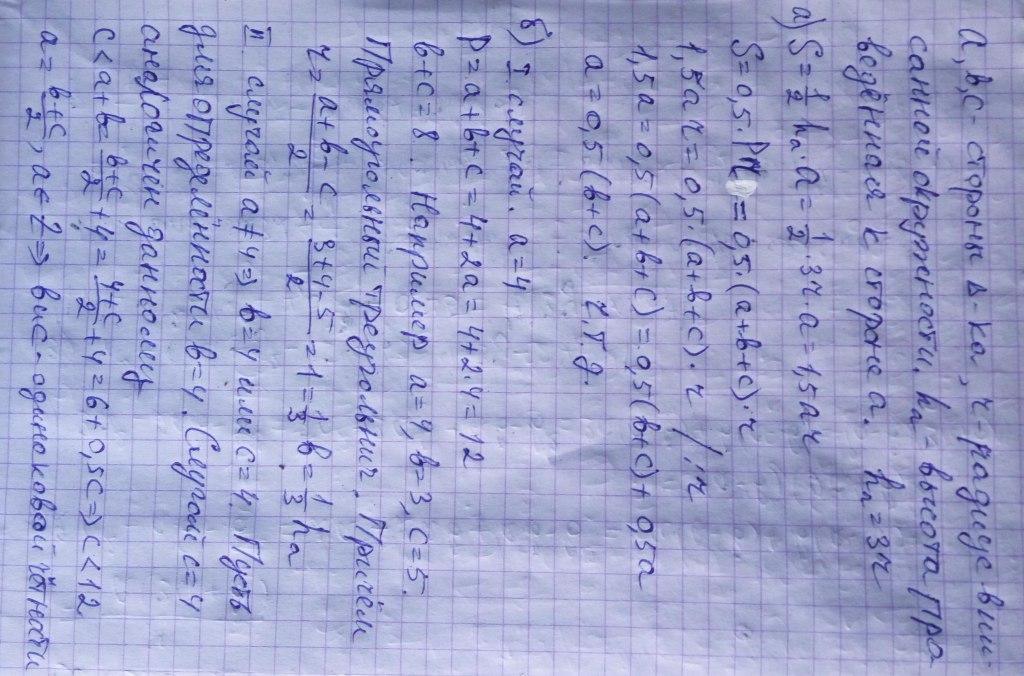 a, b, c - стороны Δ-ка, r - радиус впи-
санной окружности, hₐ - высота про
ведённая к стороне a. hₐ = 3r
а) S = 1/2 hₐ · a = 1/2 · 3r · a = 1,5ar
S = 0,5 · Pr = 0,5 · (a+b+c) · r
1,5ar = 0,5 · (a+b+c) · r / : r
1,5a = 0,5(a+b+c) = 0,5(b+c) + 0,5a
a = 0,5 · (b+c). ч.т.д.
б) I случай. a = 4
P = a+b+c = 4+2a = 4+2·4 = 12
b+c = 8. Например a = 4, b = 3, c = 5.
Прямоугольный треугольник. Причём
r = (a+b-c)/2 = (3+4-5)/2 = 1 = 1/3 b = 1/3 hₐ
II случай a ≠ 4 ⇒ b = 4 или c = 4. Пусть
для определённости b = 4. Случай c = 4
аналогичен данному
c < a+b = (b+c)/2 + 4 = (4+c)/2 + 4 = 6 + 0,5c ⇒ c < 12
a = (b+c)/2, a ∈ Z ⇒ b и c - одинаковой чётности